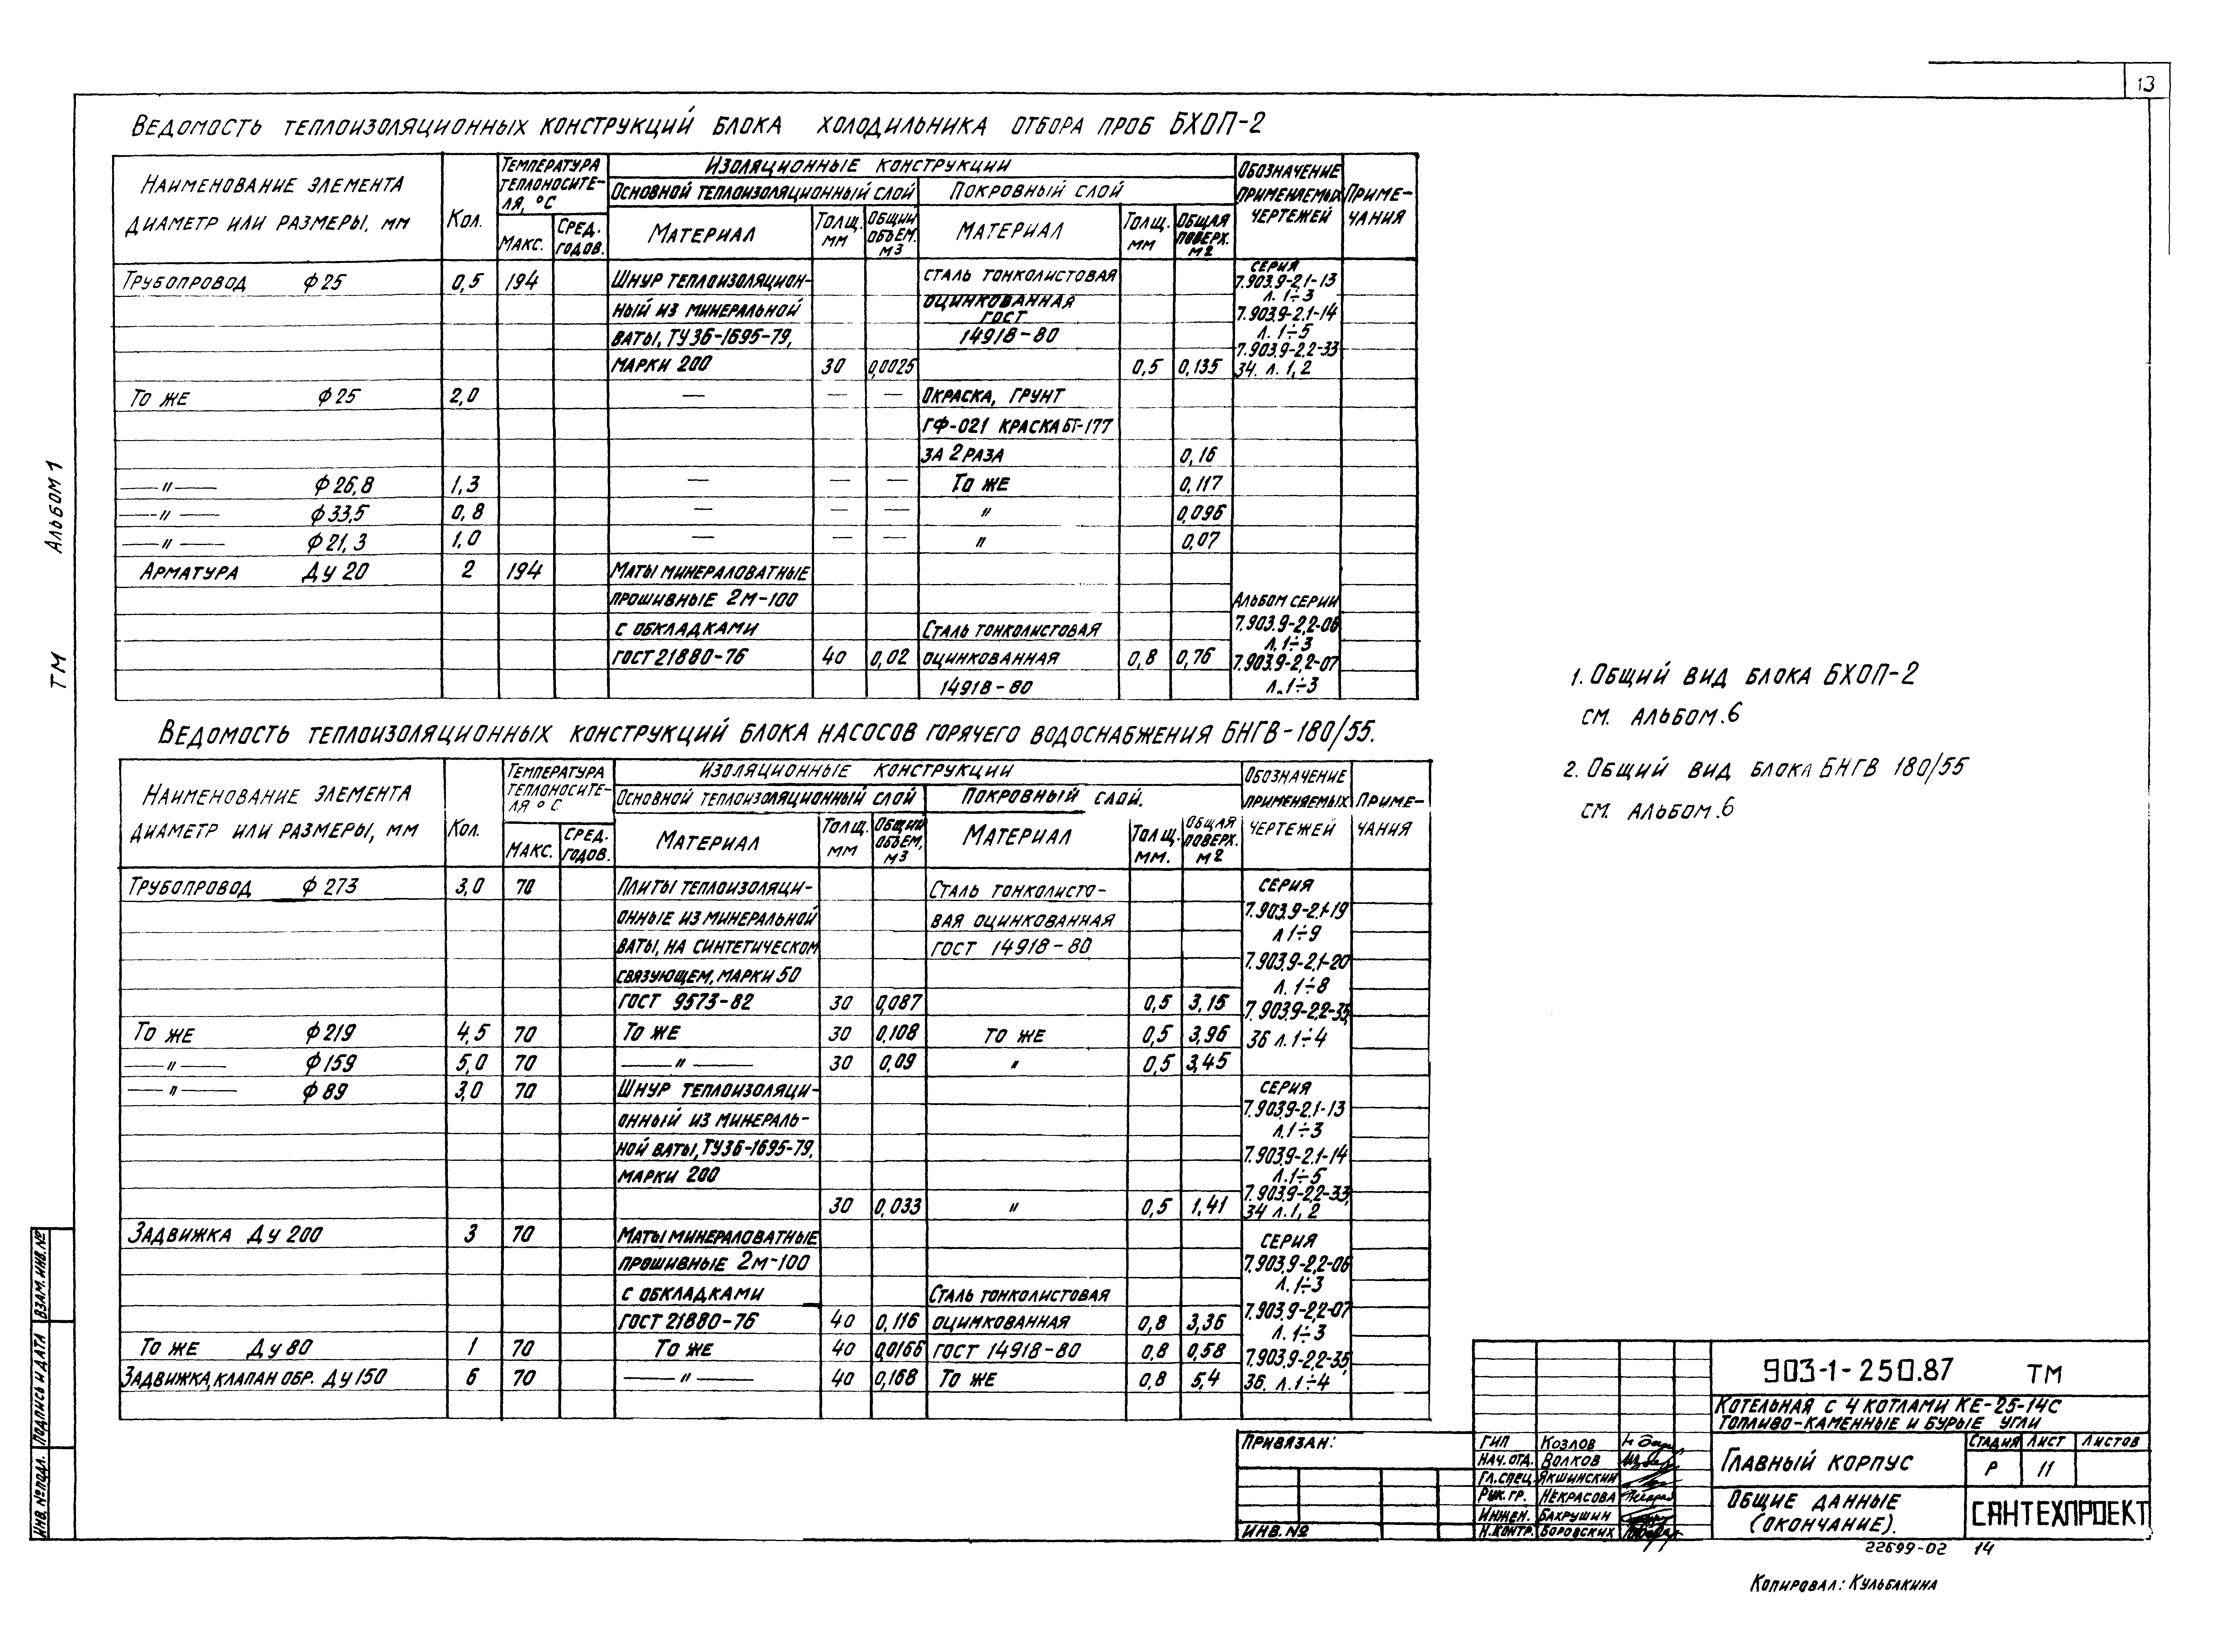 13
Ведомость теплоизоляционных конструкций блока холодильника отбора проб БХОП-2
Наименование элемента диаметр или размеры, мм | Кол. | Температура теплоносителя, °С | Изоляционные конструкции | Обозначение применяемых чертежей | Примечания
Макс. | Сред. годов. | Основной теплоизоляционный слой | Покровный слой
Материал | Толщ. мм | Общий объем. м3 | Материал | Толщ. мм | Общая поверх. м2
Трубопровод ф25 | 0,5 | 194 | Шнур теплоизоляцион- | сталь тонколистовая | серия
ный из минеральной | оцинкованная | 7.903.9-2.1-13
ваты, ТУ36-1695-79, | ГОСТ | л. 1÷3
14918-80 | 7.903.9-2.1-14
л. 1÷5
7.903.9-2.2-33
марки 200 | 30 | 0,0025 | 0,5 | 0,135 | 34. л. 1,2
То же ф25 | 2,0 | — | — | — | Окраска, грунт
ГФ-021 краска БТ-177
за 2 раза | 0,16
—〃— ф26,8 | 1,3 | — | — | — | То же | 0,117
—〃— ф33,5 | 0,8 | — | — | — | 〃 | 0,096
—〃— ф21,3 | 1,0 | — | — | — | 〃 | 0,07
Арматура Ду 20 | 2 | 194 | Маты минераловатные
прошивные 2м-100 | Альбом серии
с обкладками | Сталь тонколистовая | 7.903.9-2.2-06
л. 1÷3
ГОСТ 21880-76 | 40 | 0,02 | оцинкованная | 0,8 | 0,76 | 7.903.9-2.2-07
14918-80 | л. 1÷3
Ведомость теплоизоляционных конструкций блока насосов горячего водоснабжения БНГВ-180/55.
Наименование элемента диаметр или размеры, мм | Кол. | Температура теплоносителя °С | Изоляционные конструкции | Обозначение применяемых чертежей | Примечания
Макс. | Сред. годов. | Основной теплоизоляционный слой | Покровный слой.
Материал | Толщ. мм | Общий объем, м3 | Материал | Толщ. мм. | Общая поверх. м2
Трубопровод ф273 | 3,0 | 70 | Плиты теплоизоляци- | Сталь тонколисто- | серия
онные из минеральной | вая оцинкованная | 7.903.9-2.1-19
л 1÷9
ваты, на синтетическом | ГОСТ 14918-80 | 7.903.9-2.1-20
связующем, марки 50 | л. 1÷8
ГОСТ 9573-82 | 30 | 0,087 | 0,5 | 3,15 | 7.903.9-2.2-35,
То же ф219 | 4,5 | 70 | То же | 30 | 0,108 | То же | 0,5 | 3,96 | 36 л. 1÷4
—〃— ф159 | 5,0 | 70 | —〃— | 30 | 0,09 | 〃 | 0,5 | 3,45
—〃— ф89 | 3,0 | 70 | Шнур теплоизоляци- | серия
онный из минераль- | 7.903.9-2.1-13
л. 1÷3
ной ваты, ТУ36-1695-79, | 7.903.9-2.1-14
марки 200 | л. 1÷5
7.903.9-2.2-33,
30 | 0,033 | 〃 | 0,5 | 1,41 | 34 л. 1,2
Задвижка Ду 200 | 3 | 70 | Маты минераловатные | серия
прошивные 2м-100 | 7.903.9-2.2-06
л. 1÷3
с обкладками | Сталь тонколистовая
ГОСТ 21880-76 | 40 | 0,116 | оцинкованная | 0,8 | 3,36 | 7.903.9-2.2-07
л. 1÷3
То же Ду 80 | 1 | 70 | То же | 40 | 0,0166 | ГОСТ 14918-80 | 0,8 | 0,58 | 7.903.9-2.2-35,
Задвижка, клапан обр. Ду 150 | 6 | 70 | —〃— | 40 | 0,168 | То же | 0,8 | 5,4 | 36. л. 1÷4
1. Общий вид блока БХОП-2
см. альбом.6
2. Общий вид блока БНГВ 180/55
см. альбом.6
ТМ Альбом 1
Инв. № подл. Подпись и дата Взам. инв. №
Привязан:
Инв. №
903-1-250.87 ТМ
Котельная с 4 котлами КЕ-25-14С
Топливо-каменные и бурые угли
ГИП Козлов
Нач. отд. Волков
Гл. спец. Якшинский
Рук. гр. Некрасова
Инжен. Бахрушин
Н. контр. Боровских
Главный корпус
Стадия Лист Листов
Р 11
Общие данные
(окончание).
САНТЕХПРОЕКТ
22699-02 14
Копировал: Кульбакина